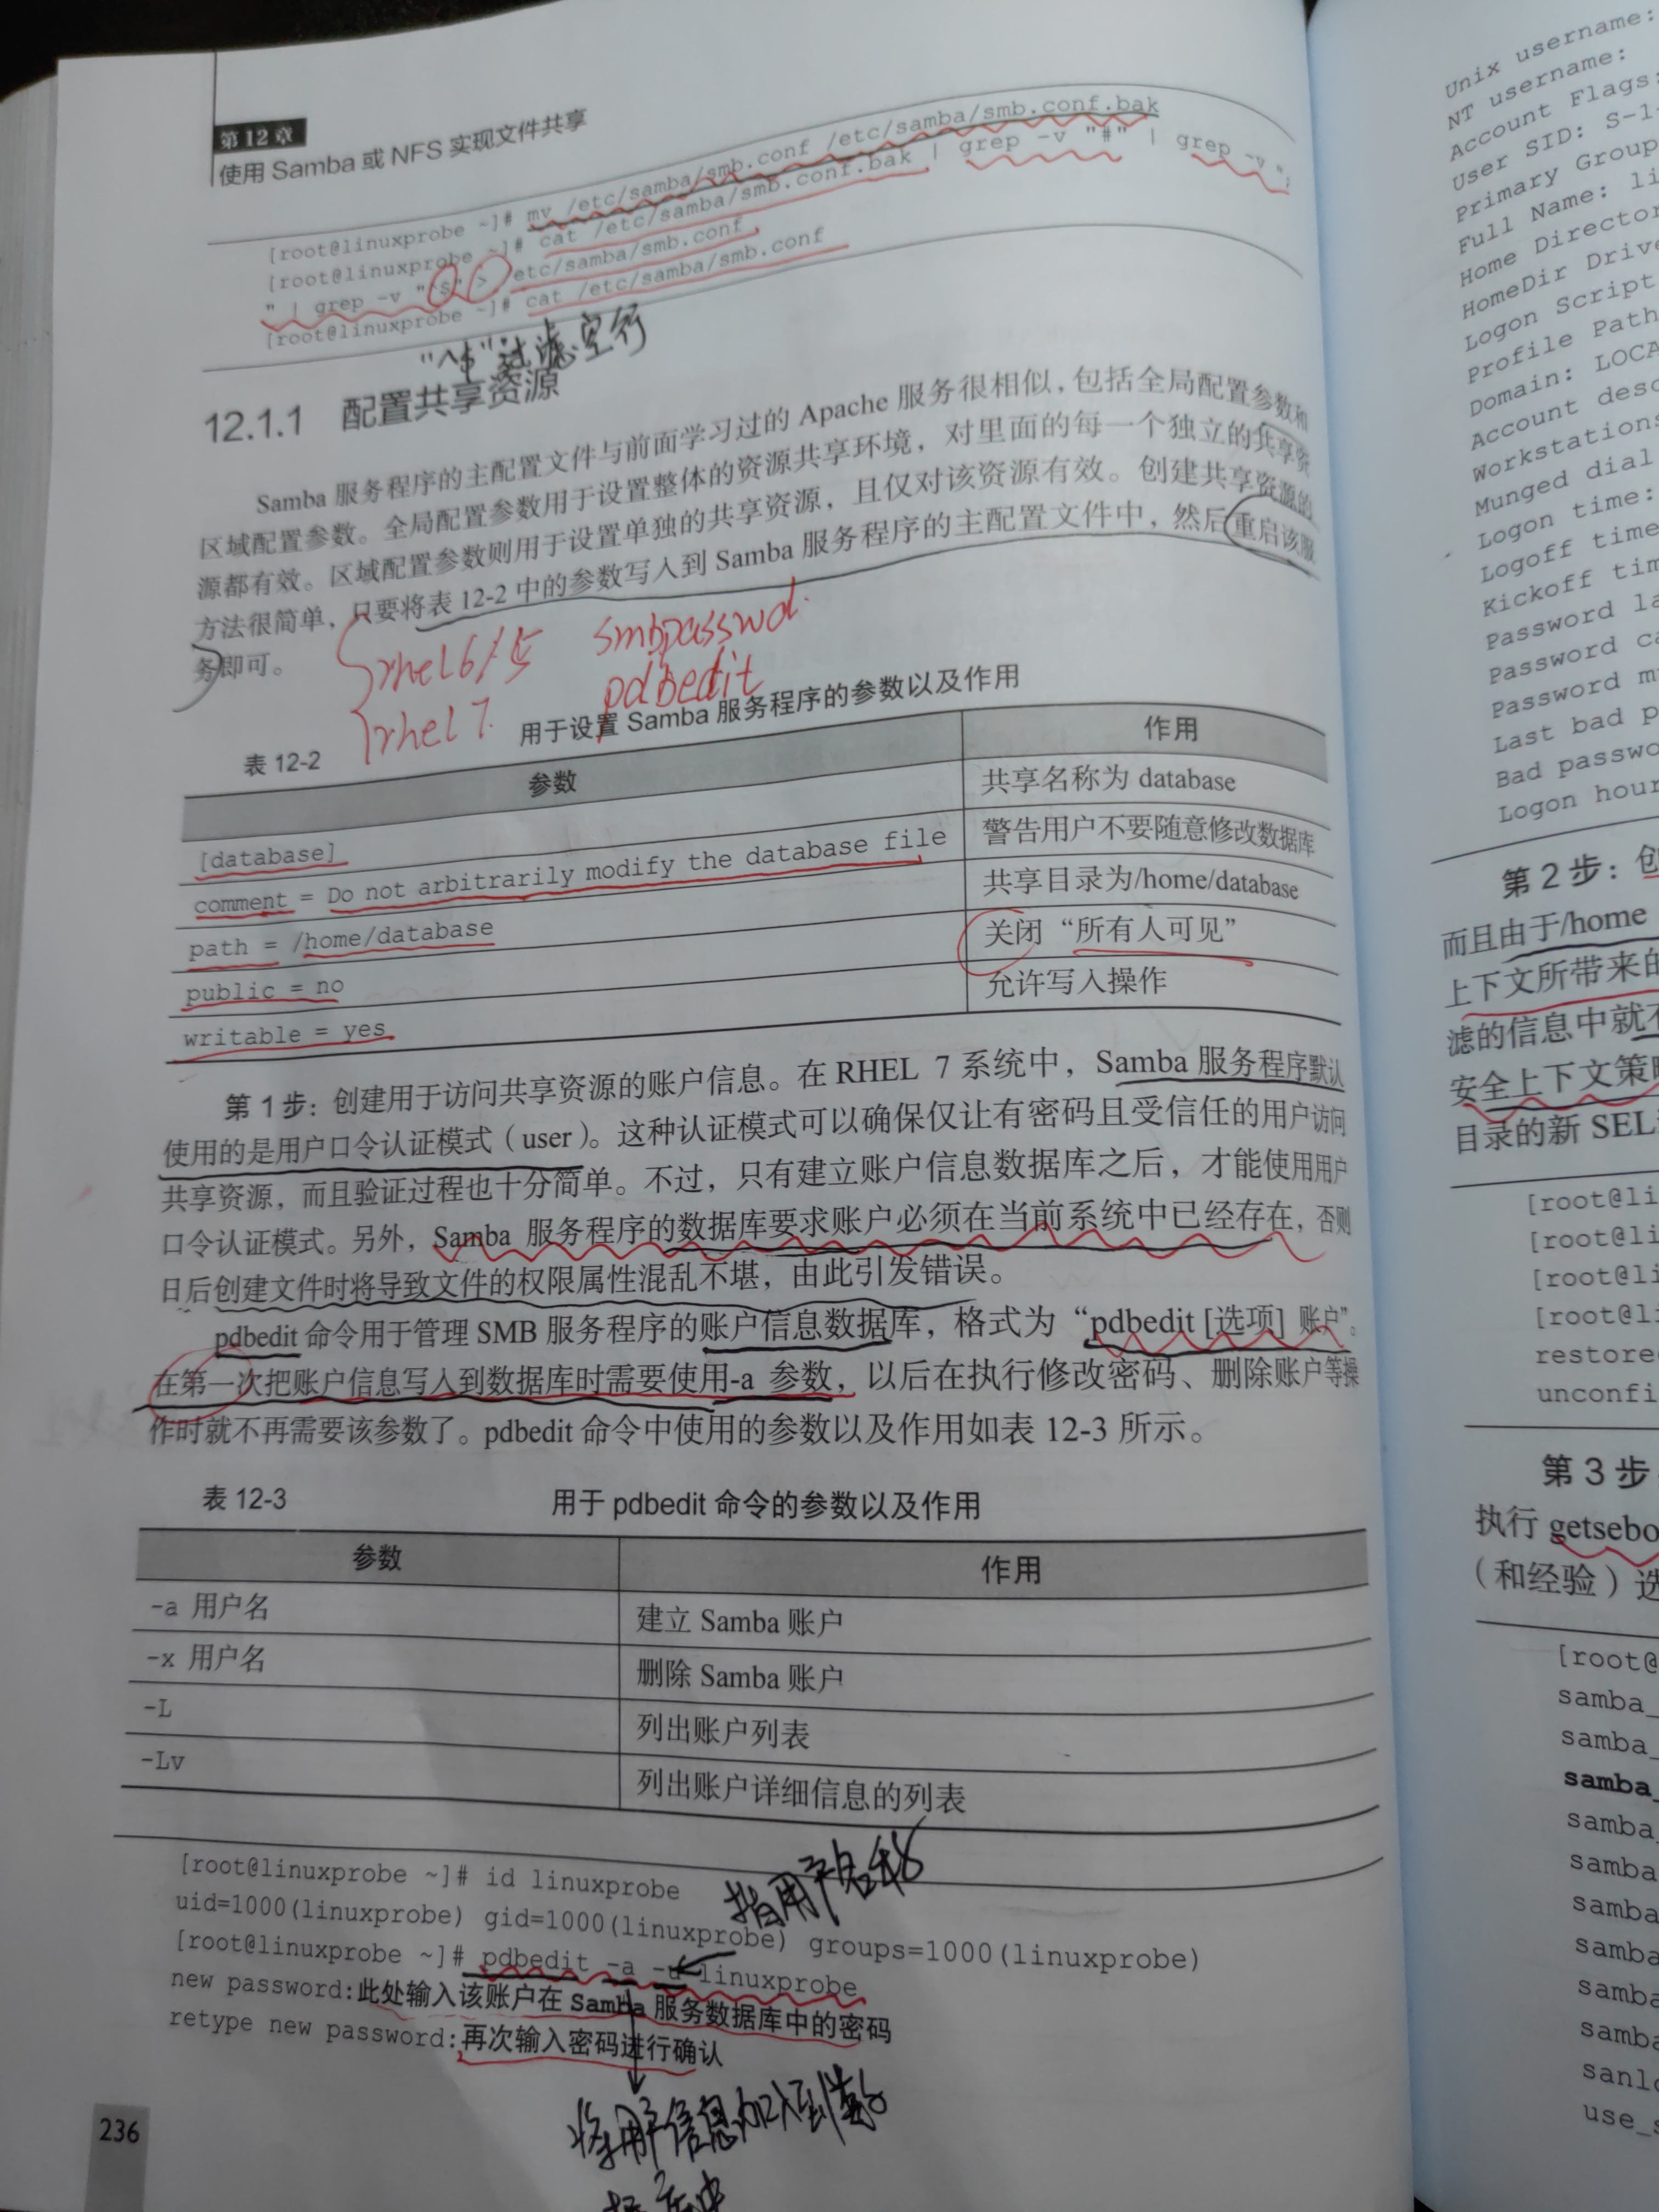 第12章
使用 Samba 或 NFS 实现文件共享
[root@linuxprobe ~]# mv /etc/samba/smb.conf /etc/samba/smb.conf.bak
[root@linuxprobe ~]# cat /etc/samba/smb.conf.bak | grep -v "#" | grep -v ";
" | grep -v "^$" > /etc/samba/smb.conf
[root@linuxprobe ~]# cat /etc/samba/smb.conf
"^$" 过滤空行
12.1.1 配置共享资源
Samba 服务程序的主配置文件与前面学习过的 Apache 服务很相似，包括全局配置参数和
区域配置参数。全局配置参数用于设置整体的资源共享环境，对里面的每一个独立的共享资
源都有效。区域配置参数则用于设置单独的共享资源，且仅对该资源有效。创建共享资源的
方法很简单，只要将表 12-2 中的参数写入到 Samba 服务程序的主配置文件中，然后重启该服
务即可。
rhel6/5 smbpasswd
rhel7 pdbedit
表 12-2 用于设置 Samba 服务程序的参数以及作用
参数 作用
[database] 共享名称为 database
comment = Do not arbitrarily modify the database file 警告用户不要随意修改数据库
path = /home/database 共享目录为/home/database
public = no 关闭“所有人可见”
writable = yes 允许写入操作
第 1 步：创建用于访问共享资源的账户信息。在 RHEL 7 系统中，Samba 服务程序默认
使用的是用户口令认证模式（user）。这种认证模式可以确保仅让有密码且受信任的用户访问
共享资源，而且验证过程也十分简单。不过，只有建立账户信息数据库之后，才能使用用户
口令认证模式。另外，Samba 服务程序的数据库要求账户必须在当前系统中已经存在，否则
日后创建文件时将导致文件的权限属性混乱不堪，由此引发错误。
pdbedit 命令用于管理 SMB 服务程序的账户信息数据库，格式为“pdbedit [选项] 账户”。
在第一次把账户信息写入到数据库时需要使用-a 参数，以后在执行修改密码、删除账户等操
作时就不再需要该参数了。pdbedit 命令中使用的参数以及作用如表 12-3 所示。
表 12-3 用于 pdbedit 命令的参数以及作用
参数 作用
-a 用户名 建立 Samba 账户
-x 用户名 删除 Samba 账户
-L 列出账户列表
-Lv 列出账户详细信息的列表
[root@linuxprobe ~]# id linuxprobe
指用户名称
uid=1000(linuxprobe) gid=1000(linuxprobe) groups=1000(linuxprobe)
[root@linuxprobe ~]# pdbedit -a -u linuxprobe
new password:此处输入该账户在 Samba 服务数据库中的密码
retype new password:再次输入密码进行确认
将用户信息加入到数
据库中
236
Unix username:
NT username:
Account Flags:
User SID: S-1-
Primary Group
Full Name: li
Home Director
HomeDir Drive
Logon Script
Profile Path
Domain: LOCA
Account desc
Workstations
Munged dial
Logon time:
Logoff time
Kickoff tim
Password la
Password ca
Password mu
Last bad p
Bad passwo
Logon hour
第 2 步：创
而且由于/home
上下文所带来的
滤的信息中就不
安全上下文策略
目录的新 SELi
[root@li
[root@li
[root@li
[root@li
restored
unconfi
第 3 步
执行 getsebo
（和经验）选
[root@
samba_
samba_
samba_
samba_
samba
samba
samba
samba
samba
sanlo
use_s